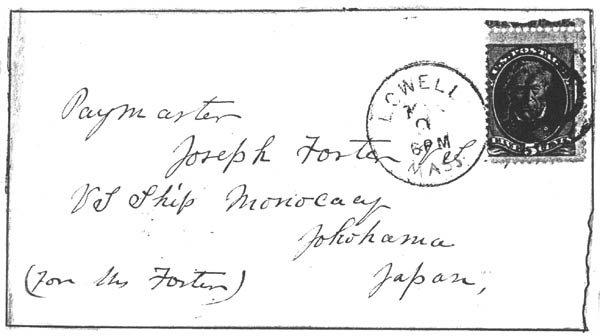 U.S. POSTAGE
FIVE 5 CENTS
LOWELL
6 PM
MASS.
Paymaster
Joseph Foster
US Ship Monocacy
Yokohama
Japan,
(For Mrs Foster)